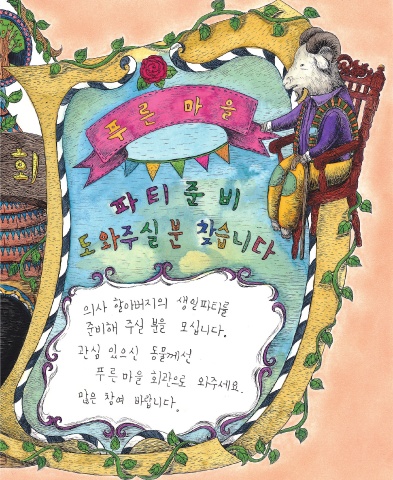 회
푸른 마을
파티 준비
도와주실 분 찾습니다
의사 할아버지의 생일파티를
준비해 주실 분을 모십니다.
관심 있으신 동물께선
푸른 마을 회관으로 와주세요.
많은 참여 바랍니다.